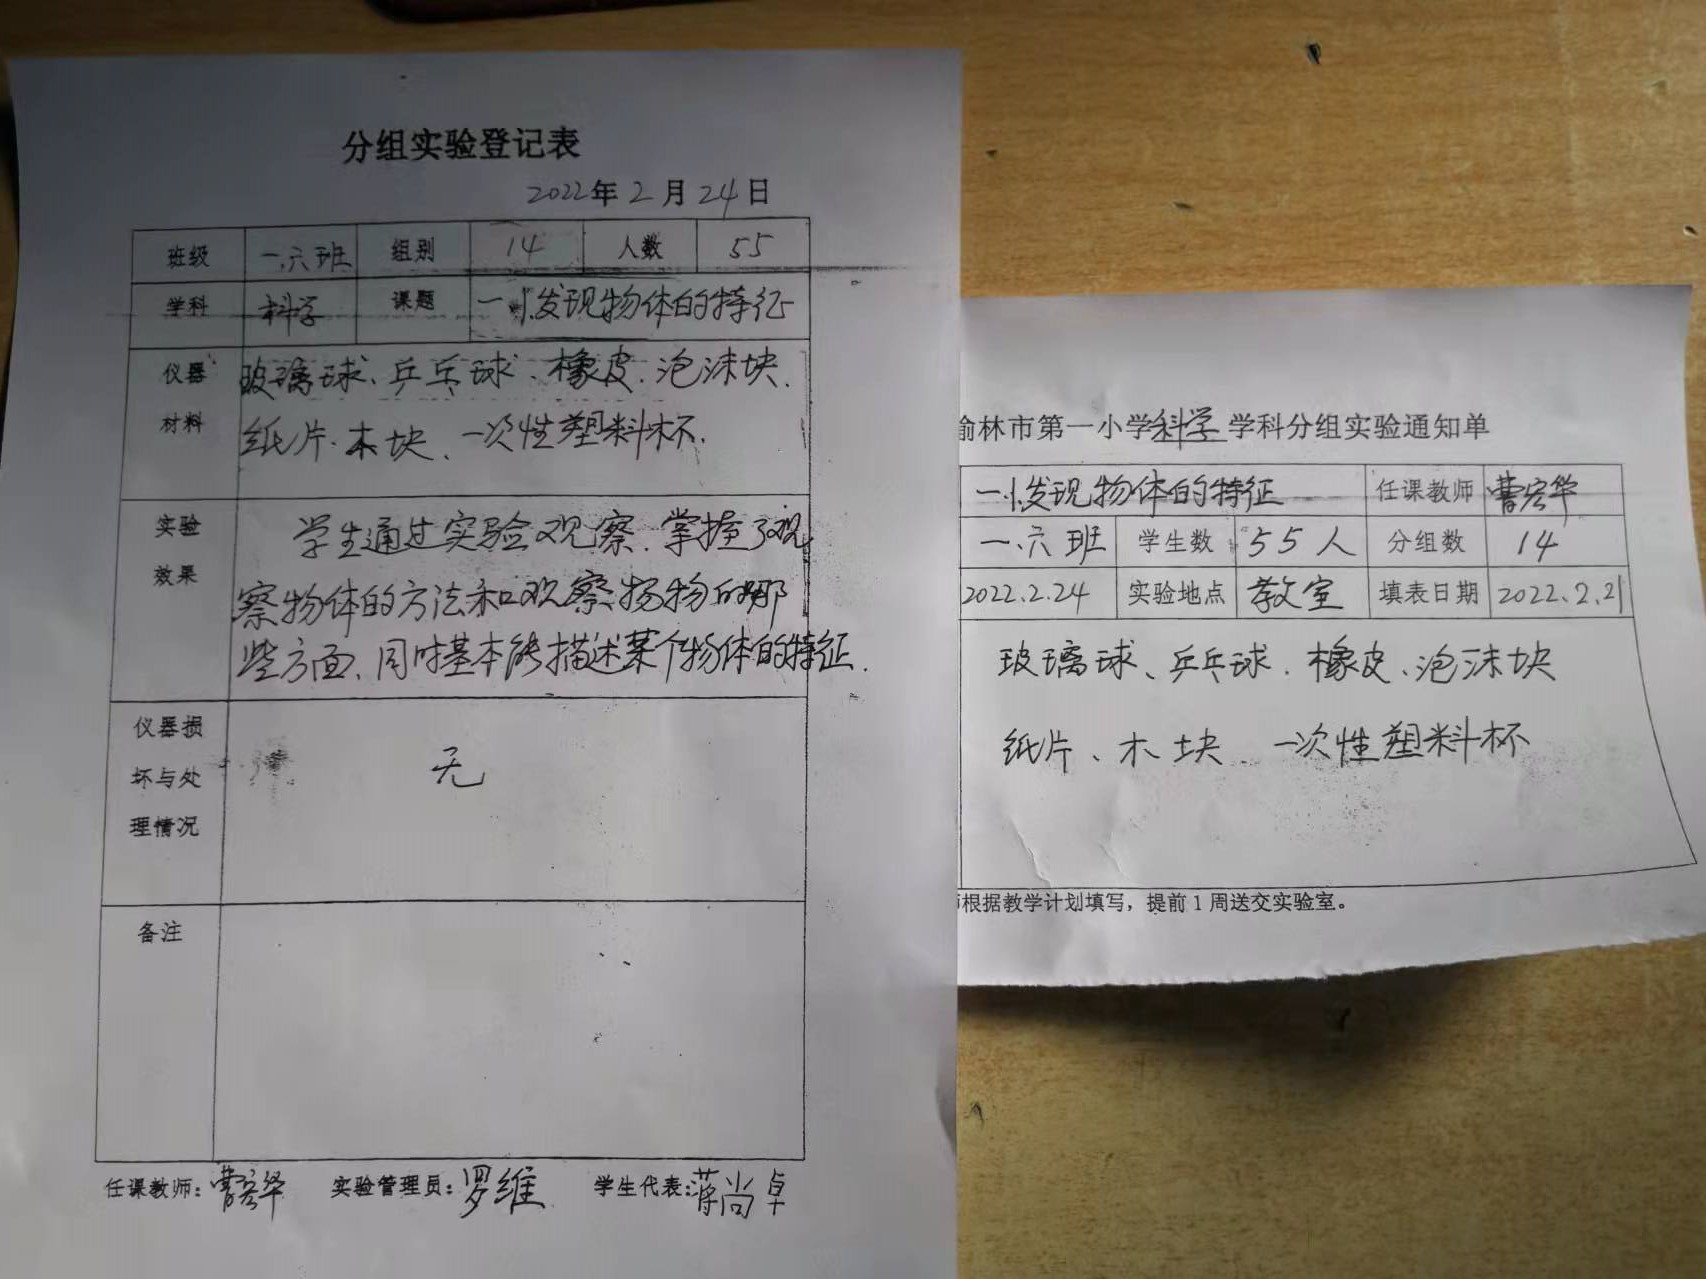 分组实验登记表
2022年2月24日
班级 一.六班 组别 14 人数 55
学科 科学 课题 一.1.发现物体的特征
仪器 玻璃球、乒乓球、橡皮、泡沫块、
材料 纸片、木块、一次性塑料杯.
实验 学生通过实验观察.掌握了观
效果 察物体的方法和观察物的哪
些方面、同时基本能描述某个物体的特征.
仪器损
坏与处 无
理情况
备注
任课教师:曹宏华 实验管理员:罗维 学生代表:蒋尚卓
榆林市第一小学科学学科分组实验通知单
一.1.发现物体的特征 任课教师 曹宏华
一、六班 学生数 55人 分组数 14
2022.2.24 实验地点 教室 填表日期 2022.2.21
玻璃球、乒乓球.橡皮、泡沫块
纸片、木块、一次性塑料杯
根据教学计划填写，提前1周送交实验室。